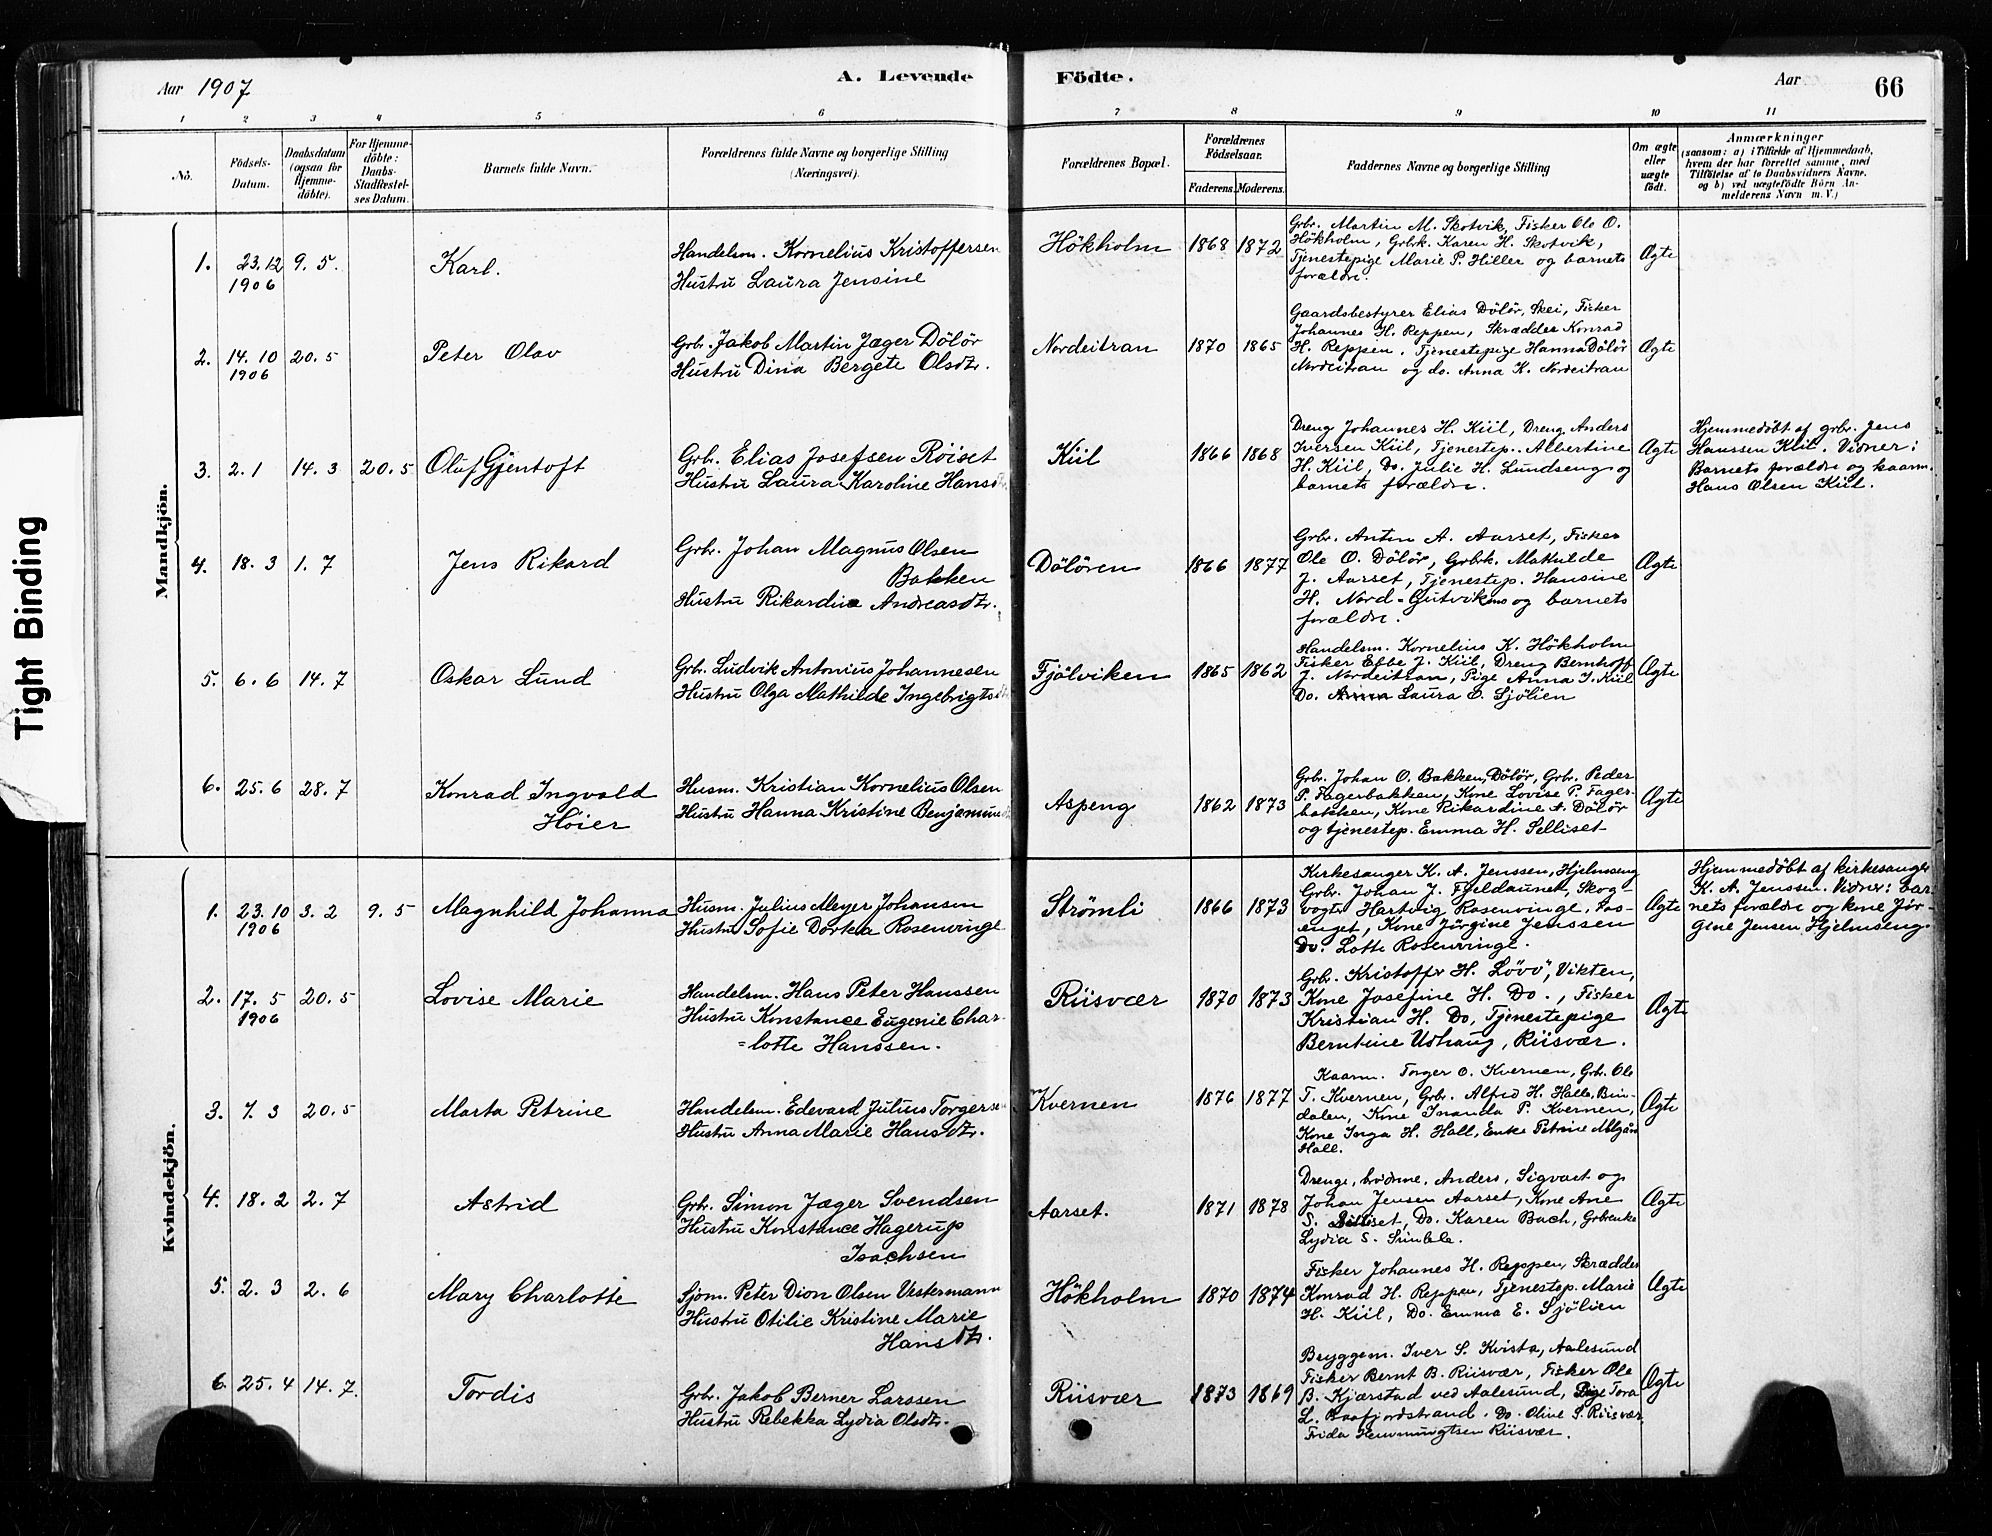 Tight Binding
Aar 1907
A. Levende
Födte.
Aar
66
1 2 3 4 5 6 7 8 9 10 11
No.
Födsels-Datum.
Daabsdatum (ogsaa for Hjemmedöbte).
For Hjemmedöbte: Daabs-Stadfestelses Datum.
Barnets fulde Navn.
Forældrenes fulde Navne og borgerlige Stilling
(Næringsvei).
Forældrenes Bopæl.
Forældrenes Födselsaar.
Faderens. Moderens.
Faddernes Navne og borgerlige Stilling
Om ægte eller uægte födt.
Anmærkninger
(saasom: a) i Tilfælde af Hjemmedaab,
hvem der har forrettet samme, med
Tilföielse af to Daabsvidners Navne.
og b) ved uægtefödte Börn An-
melderens Navn m. V.)
Mandkjön.
1. 23.12 1906 9. 5. Karl.
Handelsm. Kornelius Kristoffersen
Hustru Laura Jensine
Hökholm 1868 1872
Grbr. Martin M. Skotvik, Fisker Ole O.
Hökholm, Grbrk. Karen H. Skotvik,
Tjenestepige Marie P. Hiller og barnets
forældre.
Ægte
2. 14. 10 1906 20. 5 Peter Olav
Grbr. Jakob Martin Jæger Dölör
Hustru Dina Bergete Olsdtr.
Nordeitran 1870 1865
Gaardsbestyrer Elias Dölör, Skei, Fisker
Johannes H. Reppen, Skrædder Konrad
H. Reppen. Tjenestepige Hanna Dölör
Nordeitran og do. Anna K. Nordeitran
Ægte
3. 2. 1 14. 3 20. 5 Oluf Gjentoft
Grbr. Elias Josefsen Röiset
Hustru Laura Karoline Hansdtr.
Kiil 1866 1868
Dreng Johannes H. Kiil, Dreng Anders
Iversen Kiil, Tjenestep. Albertine
H. Kiil, Do. Julie H. Lundseng og
barnets forældre.
Ægte
Hjemmedöbt af grbr. Jens
Hanssen Kiil. Vidner:
Barnets forældre og kaarm.
Hans Olsen Kiil.
4. 18. 3 1. 7 Jens Rikard
Grbr. Johan Magnus Olsen
Bakken
Hustru Rikardine Andreasdtr.
Dölören 1866 1877
Grbr. Anton A. Aarset, Fisker
Ole O. Dölör, Grbrk. Mathilde
J. Aarset, Tjenestep. Hansine
H. Nord-Gutvik og barnets
forældre.
Ægte
5. 6. 6 14. 7 Oskar Lund
Grbr. Ludvik Antonius Johannesen
Hustru Olga Mathilde Ingebrigtsdtr
Fjölviken 1865 1862
Handelsm. Kornelius K. Hökholm
Fisker Ebbe J. Kiil, Dreng Bernhoff
J. Nordeitran, Pige Anna J. Kiil
Do. Anna Laura O. Sjölien
Ægte
6. 25. 6 28. 7 Konrad Ingvald
Höier
Husm. Kristian Kornelius Olsen
Hustru Hanna Kristine Benjaminsdtr
Aspeng 1862 1873
Grbr. Johan O. Bakken, Dölör, Grbr. Peder
P. Fagerbakken, Kone Lovise P. Fager-
bakken, Kone Rikardine A. Dölör
og tjenestep. Emma H. Selliset
Ægte
Kvindekjön.
1. 23. 10 1906 3. 2 9. 5 Magnhild Johanna
Husm. Julius Meyer Johansen
Hustru Sofie Dorka Rosenvinge
Strömli 1866 1873
Kirkesanger K. A. Jenssen, Hjelmseng
Grbr. Johan J. Fjeldaunet, Skog-
vogter Hartvig Rosenvinge,
Kone Jörgine Jenssen
Do. Lotte Rosenvinge.
Ægte
Hjemmedöbt af kirkesanger
K. A. Jenssen. Vidner: bar-
nets forældre og kone Jör-
gine Jensen Hjelmseng.
2. 17. 5 1906 20. 5 Lovise Marie
Handelsm. Hans Peter Hanssen
Hustru Konstance Eugenie Char-
=lotte Hanssen.
Riisvær 1870 1873
Grbr. Kristoffer H. Lövö, Vikten,
Kone Josefine H. Do., Fisker
Kristian H. Do, Tjenestepige
Berntine Udhaug, Riisvær.
Ægte
3. 7. 3 20. 5 Marta Petrine
Handelsm. Edevard Julius Torgersen
Hustru Anna Marie Hansdtr.
Kvernen 1876 1877
Kaarm. Torger O. Kvernen, Grbr. Ole
T. Kvernen, Grbr. Alfred H. Halls, Bin-
dalen, Kone Inanda P. Kvernen,
Kone Inga H. Hall, Enke Petrine
Hall.
Ægte
4. 18. 2 2. 7 Astrid
Grbr. Simon Jæger Svendsen
Hustru Konstance Hagerup
Isachsen
Aarset. 1871 1878
Drenge, brödrene, Anders, Sigvart og
Johan Jensen Aarset, Kone Ane
S. Selliset, Do. Karen Bach, Grbrenke
Lydia S. Simble.
Ægte
5. 2. 3 2. 6 Mary Charlotte
Sjöm. Peter Dion Olsen Vestermann
Hustru Otilie Kristine Marie
Hansdtr.
Hökholm 1870 1874
Fisker Johannes H. Reppen, Skrædder
Konrad H. Reppen, Tjenestep. Marie
H. Kiil, Do. Emma E. Sjölien
Ægte
6. 25. 4 14. 7. Tordis
Grbr. Jakob Berner Larssen
Hustru Rebekka Lydia Olsdtr.
Riisvær 1873 1869
Bryggem. Iver S. Kvistö, Aalesund
Fisker Bernt B. Riisvær, Fisker Ole
B. Kjærstad ved Aalesund, Pige Tora
L. Raafjordstrand. Do. Oline S. Riisvær,
Frida Hemmingtsen Riisvær.
Ægte